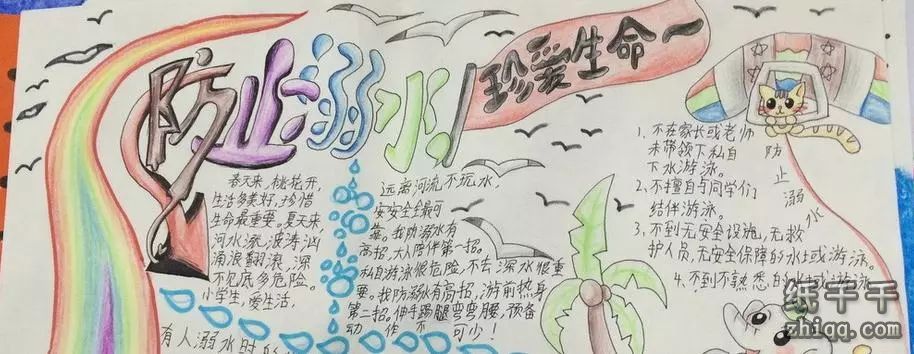 防止溺水
珍爱生命
春天来,桃花开,
生活多美好,珍惜
生命最重要。夏天来
河水涨,波涛汹
涌浪翻滚,深
不见底多危险。
小学生,爱生活,
远离河流不玩水,
安安全全最可
靠。我防溺水有
高招,大人陪伴第一招。
私自游泳很危险,不去深水很重
要。我防溺水有高招,游前热身
第二招。伸手踢腿弯弯腰,预备
动作不可少!
有人溺水时的
1、不在家长或老师
未带领下私自
下水游泳。
2、不擅自与同学们
结伴游泳。
3、不到无安全设施,无救
护人员,无安全保障的水域游泳。
4、不到不熟悉的水域游泳
防止溺水
纸千千
zhiqq.com